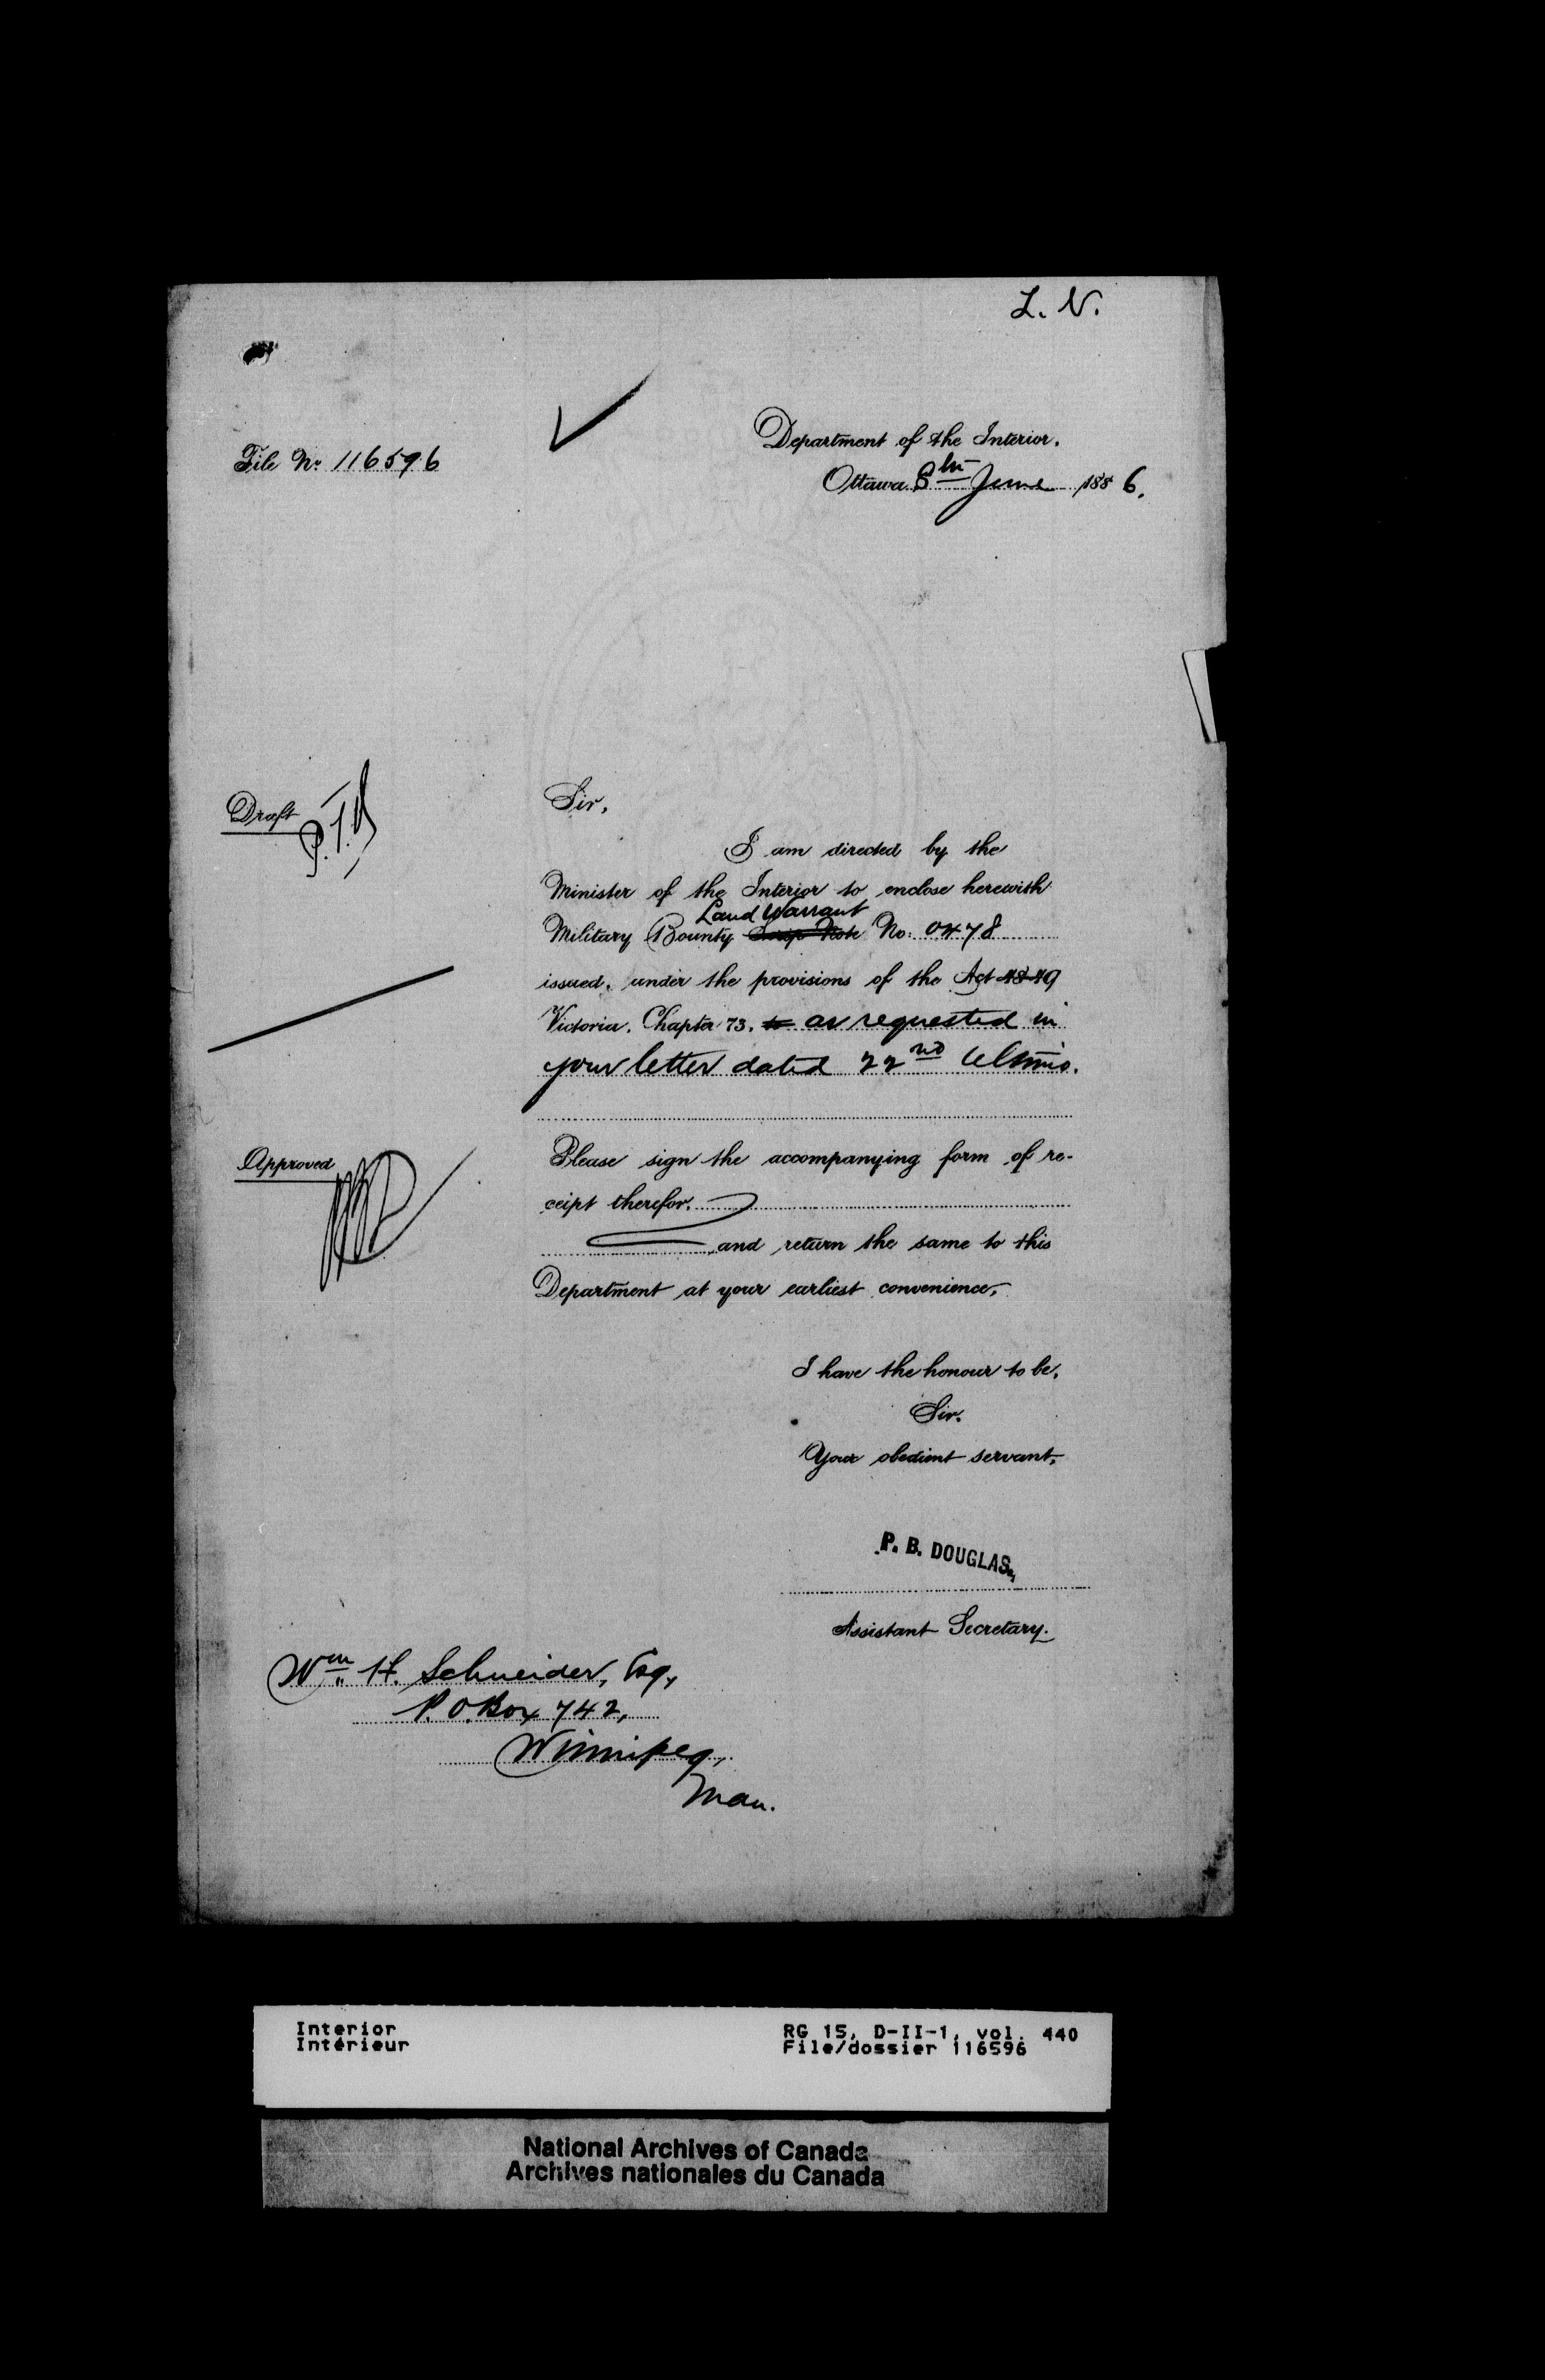 L. N.
Department of the Interior.
File No. 116596
Ottawa 8th June 1886.
Draft
Sir,
I am directed by the
Minister of the Interior to enclose herewith
Land Warrant
Military Bounty Scrip Note No. 0478
issued, under the provisions of the Act 48-49
Victoria, Chapter 73, to as requested in
your letter dated 22nd Ultimo.
Approved
Please sign the accompanying form of re-
ceipt therefor.
and return the same to this
Department at your earliest convenience,
I have the honour to be,
Sir.
Your obedient servant,
P. B. DOUGLAS,
Assistant Secretary.
Wm. H. Schneider, Esq,
P. O. Box 742,
Winnipeg,
Man.
Interior
Intérieur
RG 15, D-II-1, vol. 440
File/dossier 116596
National Archives of Canada
Archives nationales du Canada